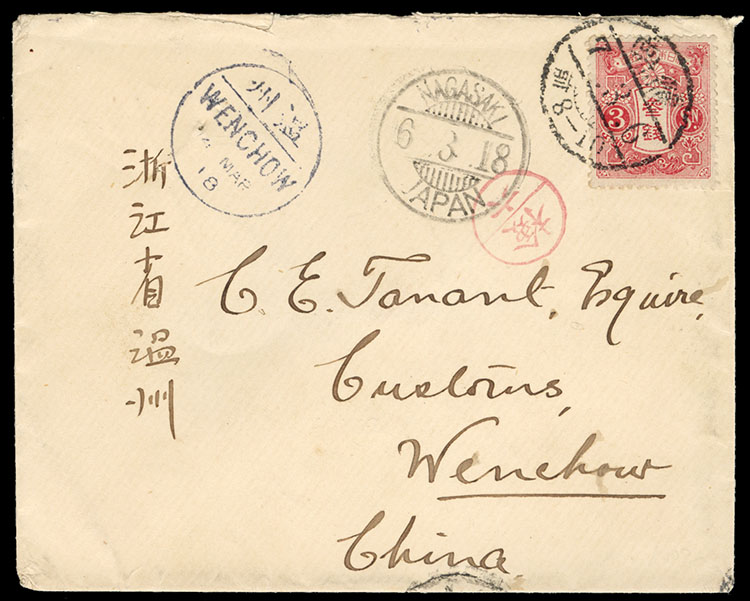 温州
WENCHOW
MAR
18
NAGASAKI
6 3 18
JAPAN
前8-10
3 SN
浙江省温州
C. E. Tanant, Esquire,
Customs,
Wenchow
China